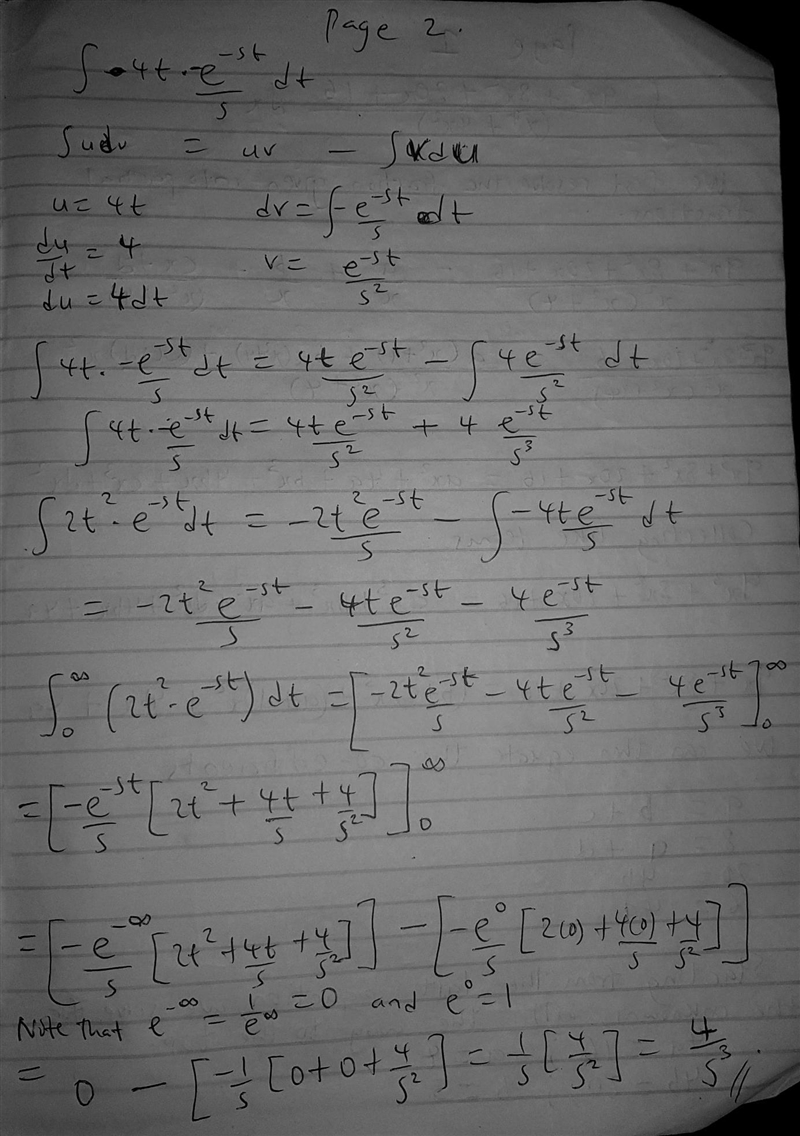 Page 2.
∫ 4t · -e^{-st}/s dt
∫udv = uv - ∫vdu
u = 4t dv = ∫ -e^{-st}/s dt
du/dt = 4 v = e^{-st}/s²
du = 4dt
∫ 4t · -e^{-st}/s dt = 4t e^{-st}/s² - ∫ 4e^{-st}/s² dt
∫ 4t · -e^{-st}/s dt = 4t e^{-st}/s² + 4 e^{-st}/s³
∫ 2t² · e^{-st} dt = -2t² e^{-st}/s - ∫ -4t e^{-st}/s dt
= -2t² e^{-st}/s - 4t e^{-st}/s² - 4 e^{-st}/s³
∫₀^∞ (2t² · e^{-st}) dt = [-2t² e^{-st}/s - 4t e^{-st}/s² - 4e^{-st}/s³]₀^∞
= [-e^{-st}/s [2t² + 4t/s + 4/s²]]₀^∞
= [-e^{-∞}/s [2t² + 4t/s + 4/s²]] - [-e⁰/s [2(0) + 4(0)/s + 4/s²]]
Note that e^{-∞} = 1/e^∞ = 0 and e⁰ = 1
= 0 - [-1/s [0 + 0 + 4/s²]] = 1/s [4/s²] = 4/s³ //